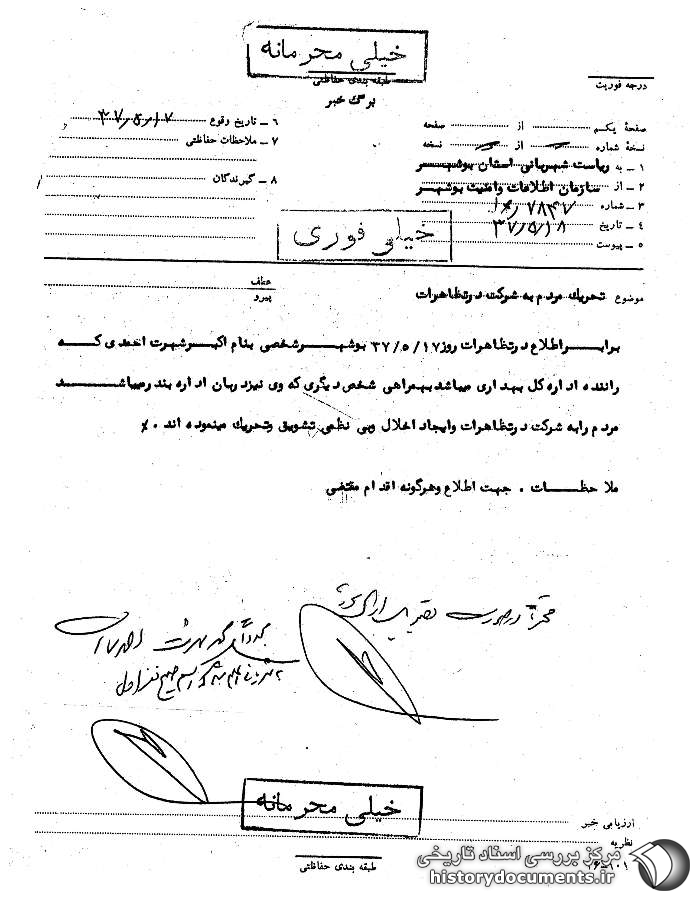 خیلی محرمانه
طبقه بندی حفاظتی
برگ خبر
درجه فوریت
صفحهٔ یکم از صفحه
نسخهٔ شماره از نسخه
۱ ـ به ریاست شهربانی استان بوشهر
۲ ـ از سازمان اطلاعات وامنیت بوشهر
۳ ـ شماره ۷۸۴۷
۴ ـ تاریخ ۳۷/۵/۱۸
۵ ـ پیوست
۶ ـ تاریخ وقوع ۳۷/۵/۱۷
۷ ـ ملاحظات حفاظتی
۸ ـ گیرندگان
خیلی فوری
عطف
پیرو
موضوع تحریك مردم به شرکت درتظاهرات
برابر اطلاع درتظاهرات روز ۳۷/۵/۱۷ بوشهر شخصی بنام اکبر شهرت احمدی که
راننده اداره کل بهداری میباشد بهمراهی شخص دیگری که وی نیزدربان اداره بندرمیباشد
مردم رابه شرکت درتظاهرات وایجاد اخلال وبی نظمی تشویق وتحریك مینموده اند . ٪
ملاحظات . جهت اطلاع وهرگونه اقدام مقتضی
خیلی محرمانه
ارزیابی خبر
نظریه
طبقه بندی حفاظتی
مرکز بررسی اسناد تاریخی
historydocuments.ir